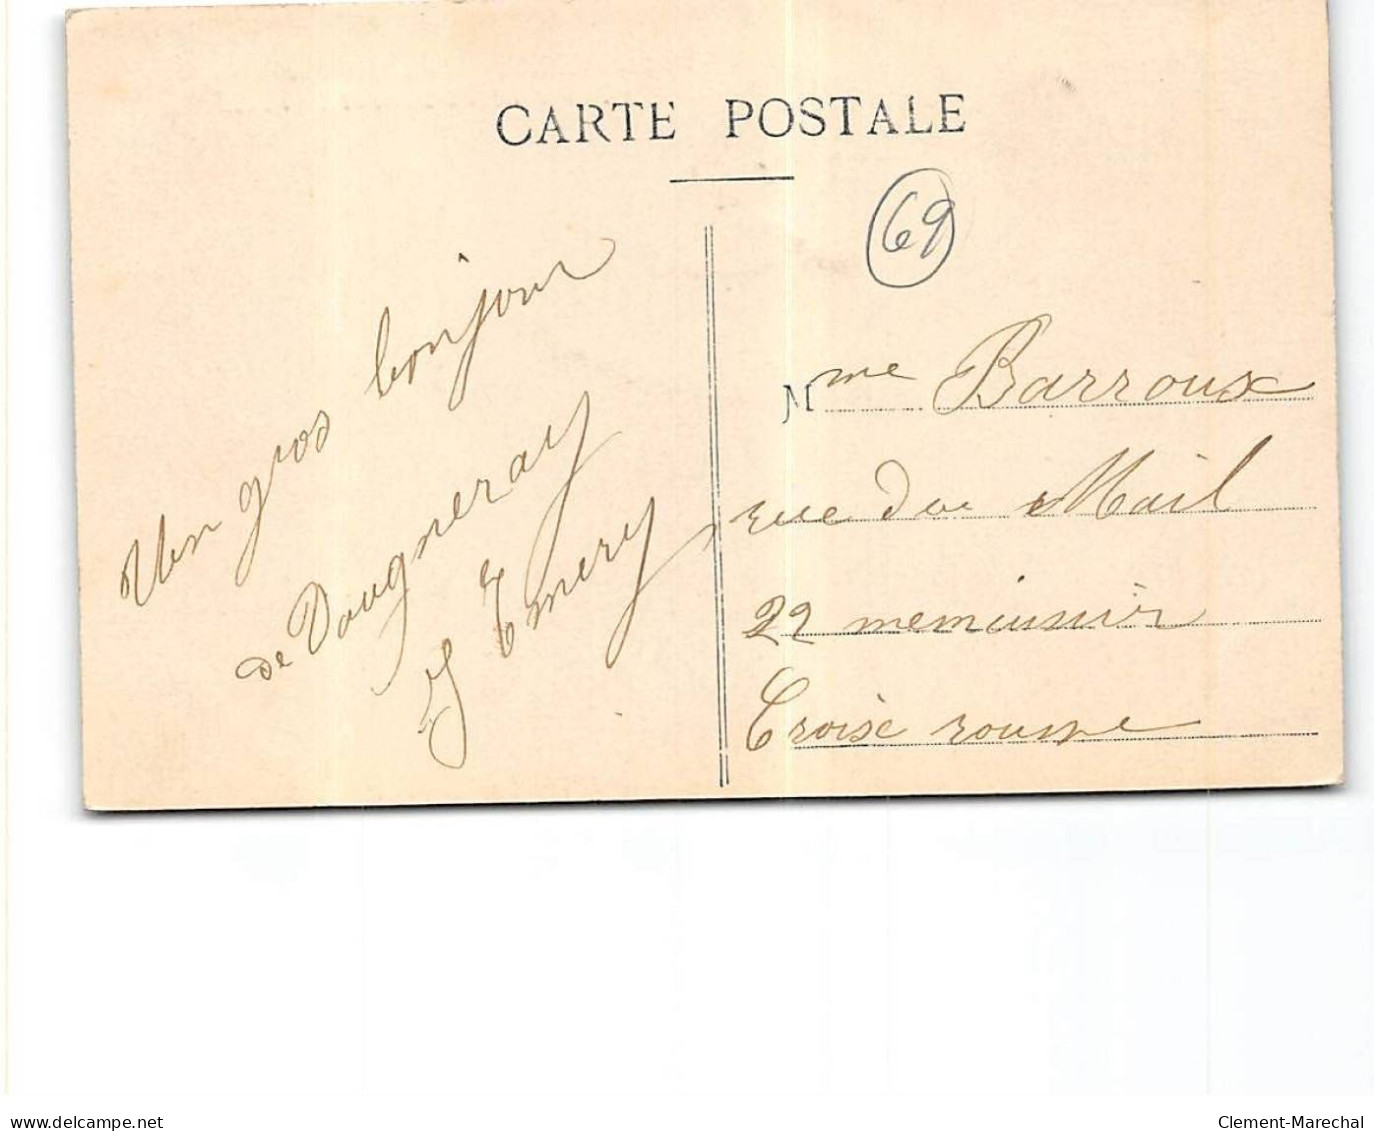 CARTE POSTALE
69
Un gros bonjour
de Dougneray
J Emery
Mme Barroux
rue du Mail
22 memuisier
Croix rousse
delcampe.net
Clement-Marechal